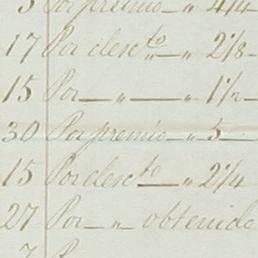 3 Por premio — " 4 1/4
17 Por desc.to — " 2 1/8
15 Por — " — " 1 1/2
30 Por premio — " 5 —
15 Por desc.to — " 2 1/4
27 Por — " — obtenido
7